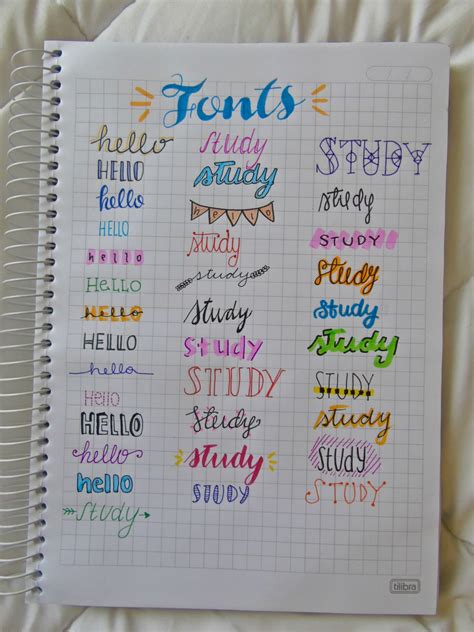 Fonts
hello
HELLO
hello
HELLO
hello
HeLLO
hello
HELLO
hello
hello
HELLO
hello
hello
study
study
study
hello
study
study
study
study
STUDY
study
study
STUDY
STUDY
study
STUDY
study
study
study
STUDY
study
study
STUDY
tilibra